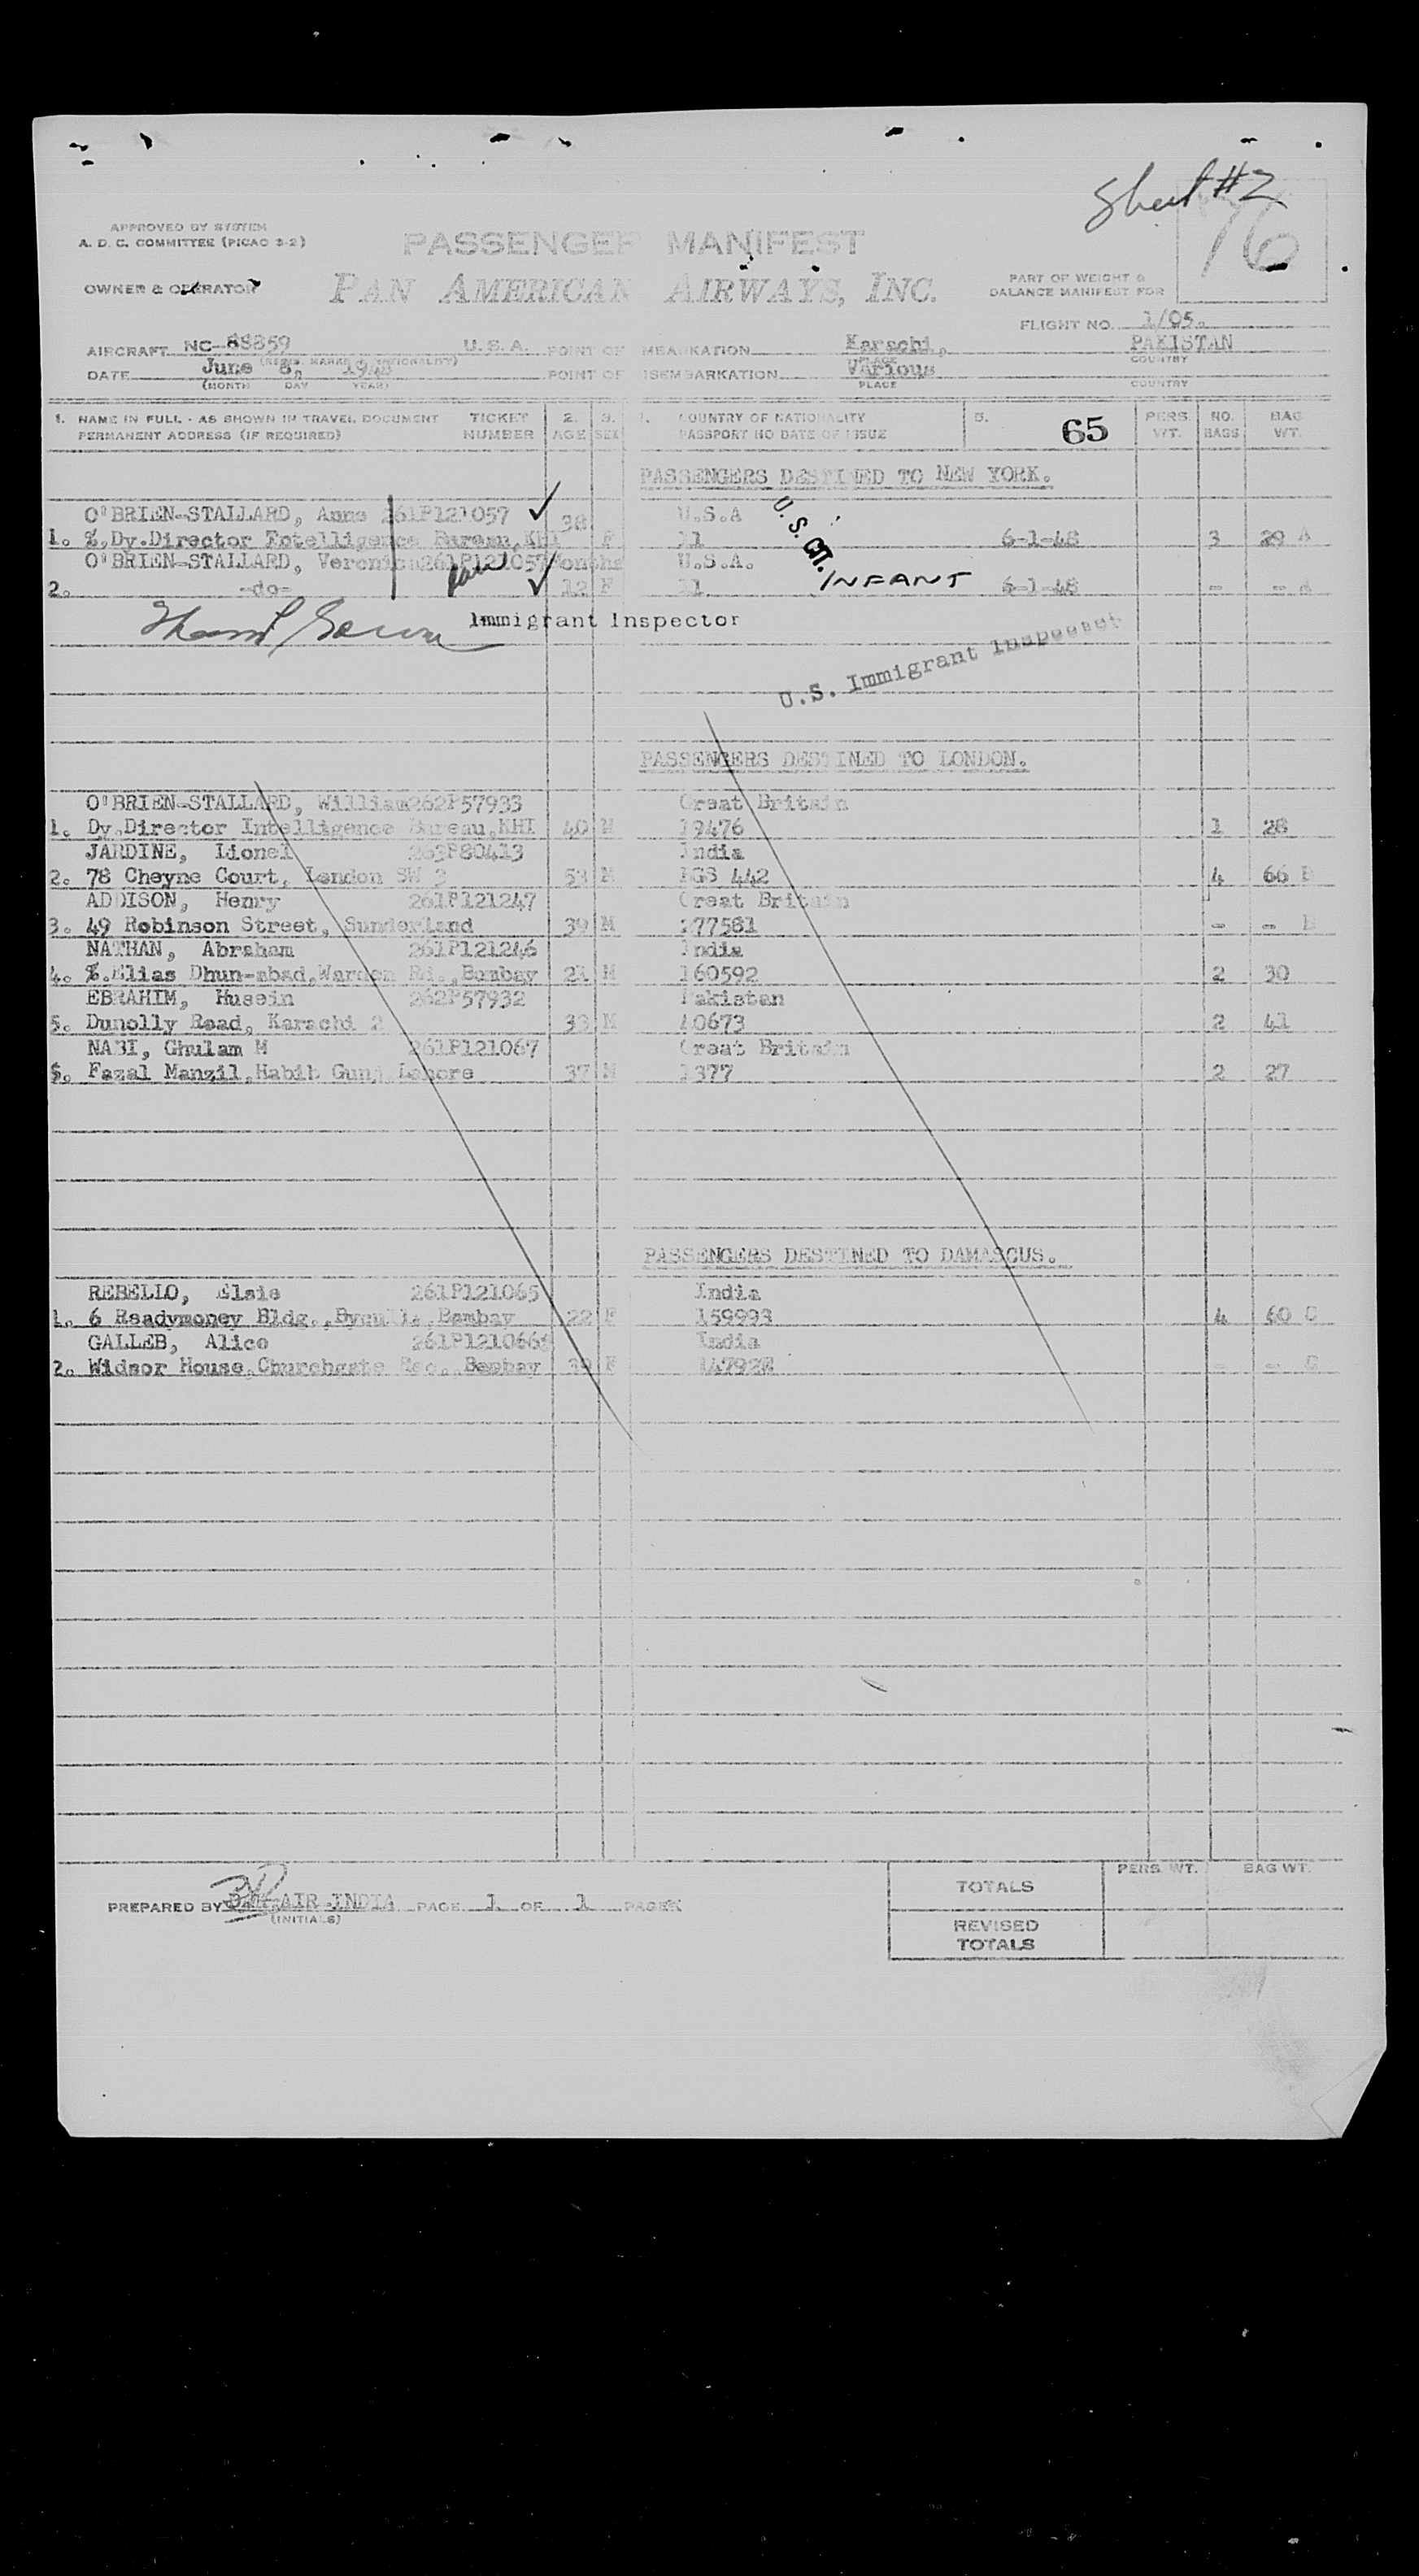 Sheet #2
76
APPROVED BY SYSTEM
A. D. C. COMMITTEE (PICAO 3-2)
PASSENGER MANIFEST
OWNER & OPERATOR
PAN AMERICAN AIRWAYS, INC.
PART OF WEIGHT &
BALANCE MANIFEST FOR
FLIGHT NO. 1/05.
AIRCRAFT NC-88859 U.S.A. POINT OF EMBARKATION Karachi, PAKISTAN
(REGIS. MARKS & NATIONALITY) PLACE COUNTRY
DATE June 8, 1948 POINT OF DISEMBARKATION Various
(MONTH DAY YEAR) PLACE COUNTRY
1. NAME IN FULL - AS SHOWN IN TRAVEL DOCUMENT TICKET 2. 3. 4. COUNTRY OF NATIONALITY 5. 65 PERS NO. BAG
PERMANENT ADDRESS (IF REQUIRED) NUMBER AGE SEX PASSPORT NO DATE OF ISSUE WT. BAGS WT.
PASSENGERS DESTINED TO NEW YORK.
O'BRIEN-STALLARD, Anne 261P121057 38 U.S.A U.S. CIT.
1. %,Dy.Director Entelligence Bureau,KHI F 11 6-1-48 3 29 A
O'BRIEN-STALLARD, Veronica 261P121057 Months U.S.A.
2. -do- 12 F 11 INFANT 6-1-48 - - A
Immigrant Inspector
U.S. Immigrant Inspector
PASSENGERS DESTINED TO LONDON.
O'BRIEN-STALLARD, William 262P57933 Great Britain
1. Dy.Director Intelligence Bureau,KHI 40 M 19476 1 28
JARDINE, Lionel 263P80413 India
2. 78 Cheyne Court, London SW 3 53 M 442 4 66 B
ADDISON, Henry 261P121247 Great Britain
3. 49 Robinson Street, Sunderland 39 M 277581 - - B
NATHAN, Abraham 261P121246 India
4. %.Elias Dhun-abad,Warden Rd.,Bombay 21 M 160592 2 30
EBRAHIM, Husein 262P57932 Pakistan
5. Dunolly Road, Karachi 2 33 M 40673 2 41
NABI, Ghulam M 261P121067 Great Britain
6. Fazal Manzil,Habib Gunj Lahore 37 M 1377 2 27
PASSENGERS DESTINED TO DAMASCUS.
REBELLO, Elsie 261P121065 India
1. 6 Readymoney Bldg.,Byculla,Bombay 22 F 159993 4 60 C
GALLEB, Alice 261P121066 India
2. Widsor House,Churchgate Rec.,Bombay 39 F - - C
PREPARED BY AIR INDIA PAGE 1 OF 1 PAGES
(INITIALS)
PERS. WT. BAG WT.
TOTALS
REVISED
TOTALS